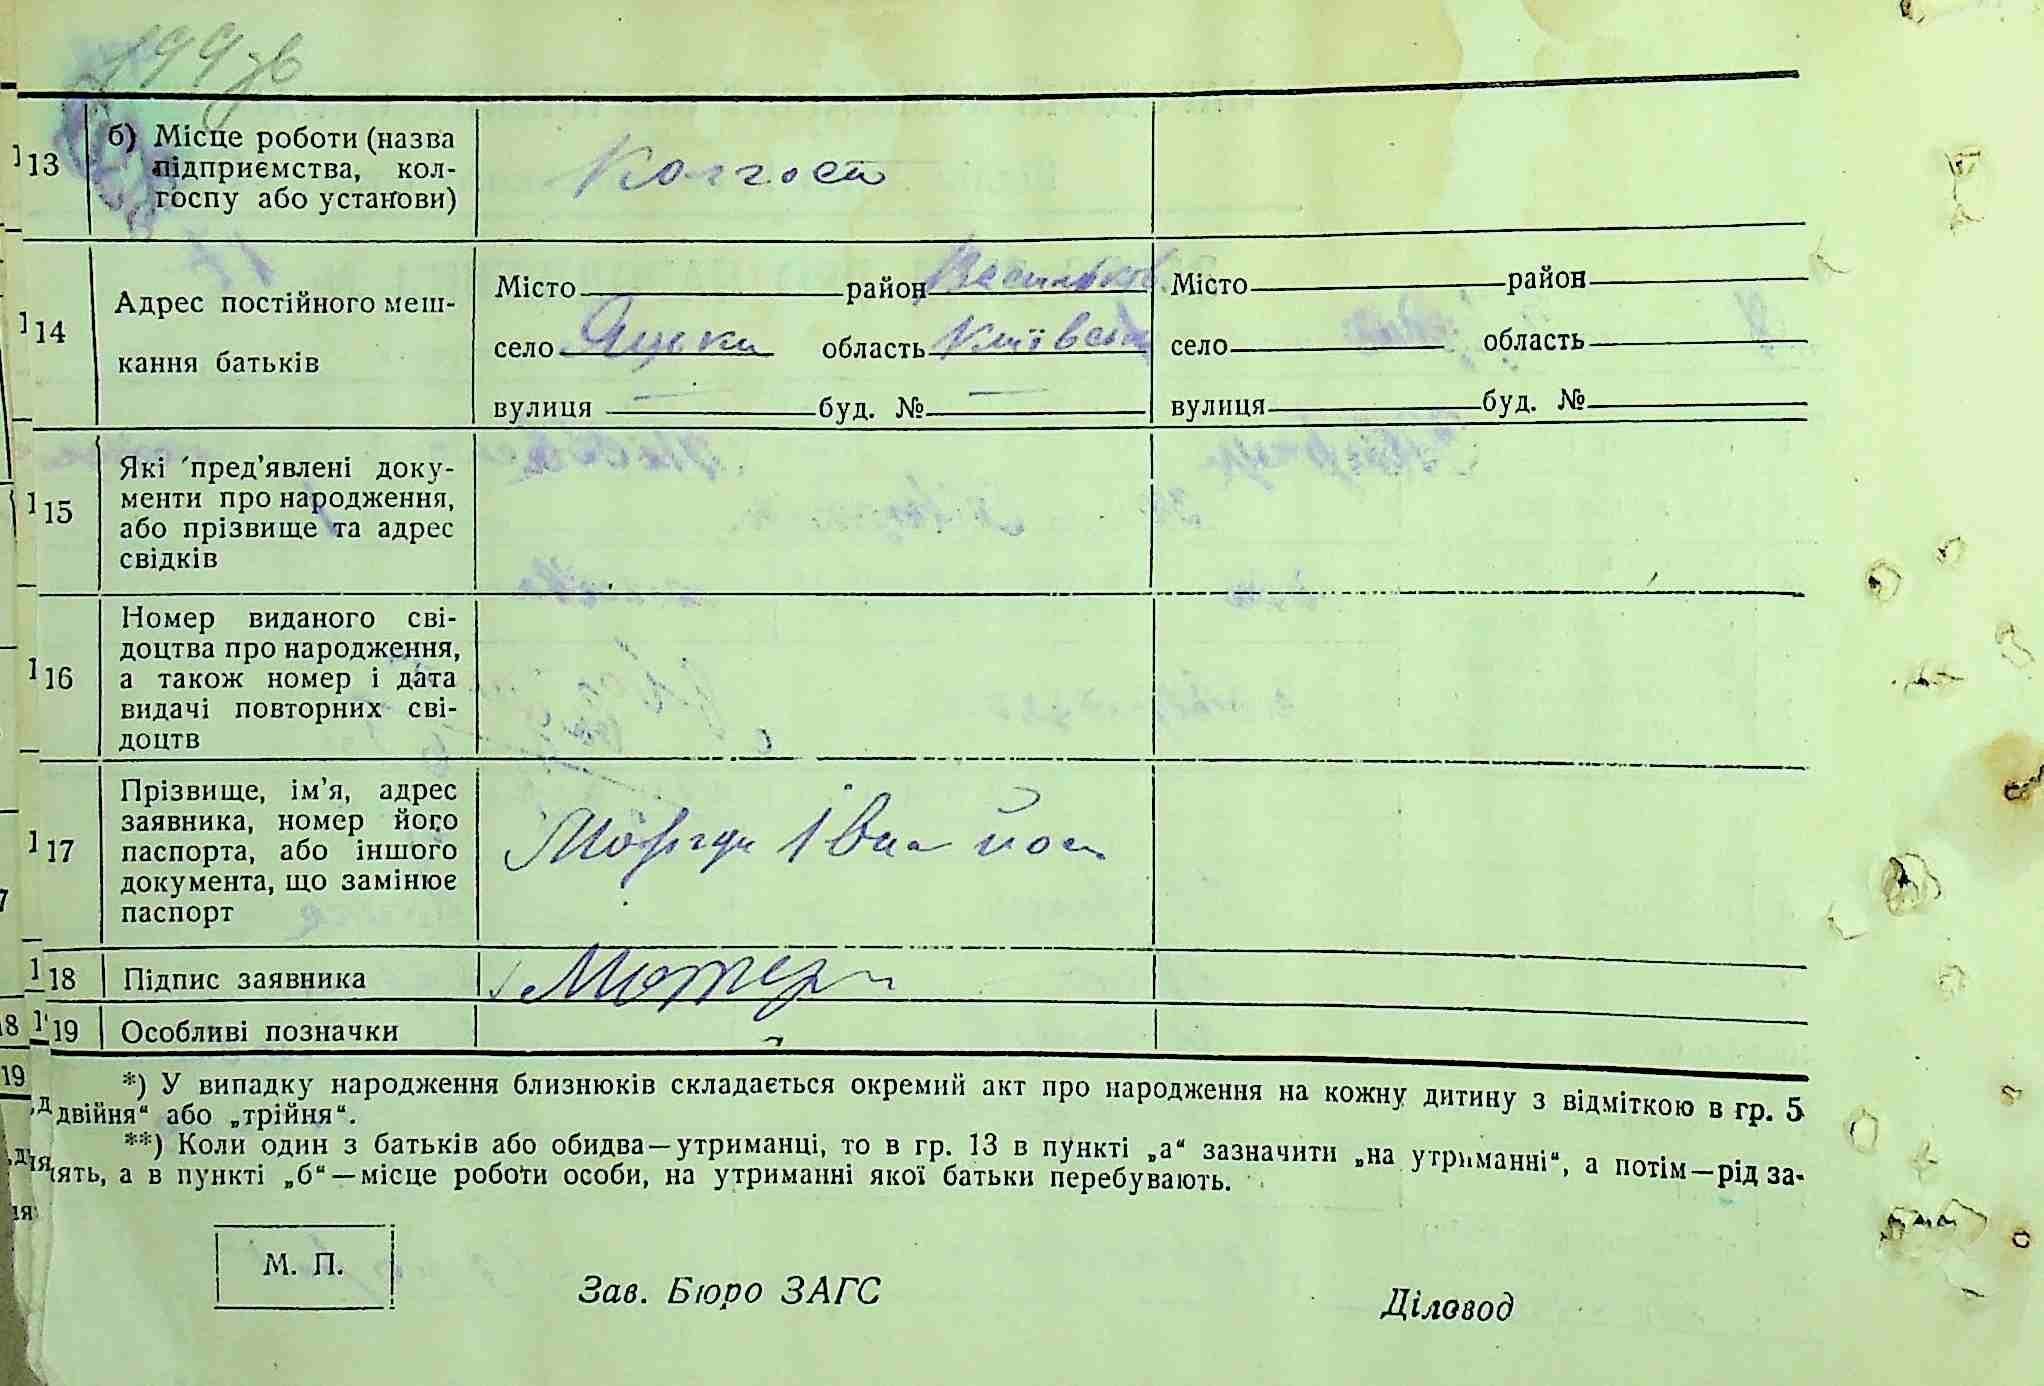 199зв
13 б) Місце роботи (назва
підприємства, кол-
госпу або установи)
Колгосп
14 Адрес постійного меш-
кання батьків
Місто район Васильків. Місто район
село Яцьки область Київськ село область
вулиця — буд. № — вулиця буд. №
15 Які пред’явлені доку-
менти про народження,
або прізвище та адрес
свідків
16 Номер виданого сві-
доцтва про народження,
а також номер і дата
видачі повторних сві-
доцтв
17 Прізвище, ім’я, адрес
заявника, номер його
паспорта, або іншого
документа, що замінює
паспорт
Іван Йос
18 Підпис заявника
19 Особливі позначки
*) У випадку народження близнюків складається окремий акт про народження на кожну дитину з відміткою в гр. 5
двійня“ або „трійня“.
**) Коли один з батьків або обидва—утриманці, то в гр. 13 в пункті „а“ зазначити „на утриманні“, а потім—рід за-
нять, а в пункті „б“—місце роботи особи, на утриманні якої батьки перебувають.
М. П.
Зав. Бюро ЗАГС Діловод